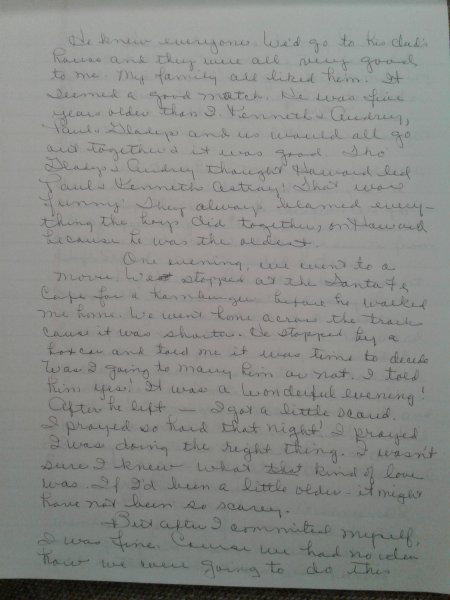 He knew everyone. We'd go to his dad's
house and they were all very good
to me. My family all liked him. It
seemed a good match. He was five
years older than I. Kenneth & Audrey,
Paul & Gladys and us would all go
out together & it was good. Tho
Gladys & Audrey thought Howard led
Paul & Kenneth astray! That was
funny! They always blamed every-
thing the boys did together, on Howard
because he was the oldest.
One evening, we went to a
movie. We stopped at the Santa Fe
Cafe for a hamburger before he walked
me home. We went home across the track
cause it was shorter. He stopped by a
boxcar and told me it was time to decide
Was I going to marry him or not. I told
him yes! It was a wonderful evening!
After he left — I got a little scared.
I prayed so hard that night! I prayed
I was doing the right thing. I wasn't
sure I knew what that kind of love
was. If I'd been a little older - it might
have not been so scarey.
But after I committed myself,
I was fine. Course we had no idea
how we were going to do this